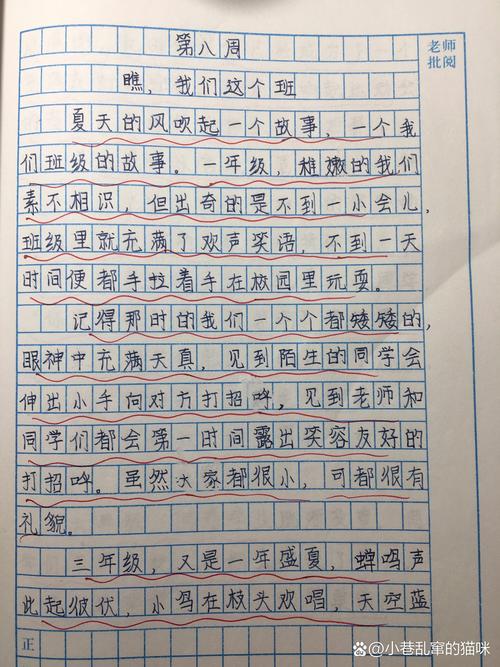 第八周
老师
批阅
瞧，我们这个班
夏天的风吹起一个故事，一个我
们班级的故事。一年级，稚嫩的我们
素不相识，但出奇的是不到一小会儿，
班级里就充满了欢声笑语，不到一天
时间便都手拉着手在校园里玩耍。
记得那时的我们一个个都矮矮的，
眼神中充满天真，见到陌生的同学会
伸出小手向对方打招呼，见到老师和
同学们都会第一时间露出笑容友好的
打招呼。虽然大家都很小，可都很有
礼貌。
三年级，又是一年盛夏，蝉鸣声
此起彼伏，小鸟在枝头欢唱，天空蓝
正
知乎 @小巷乱窜的猫咪